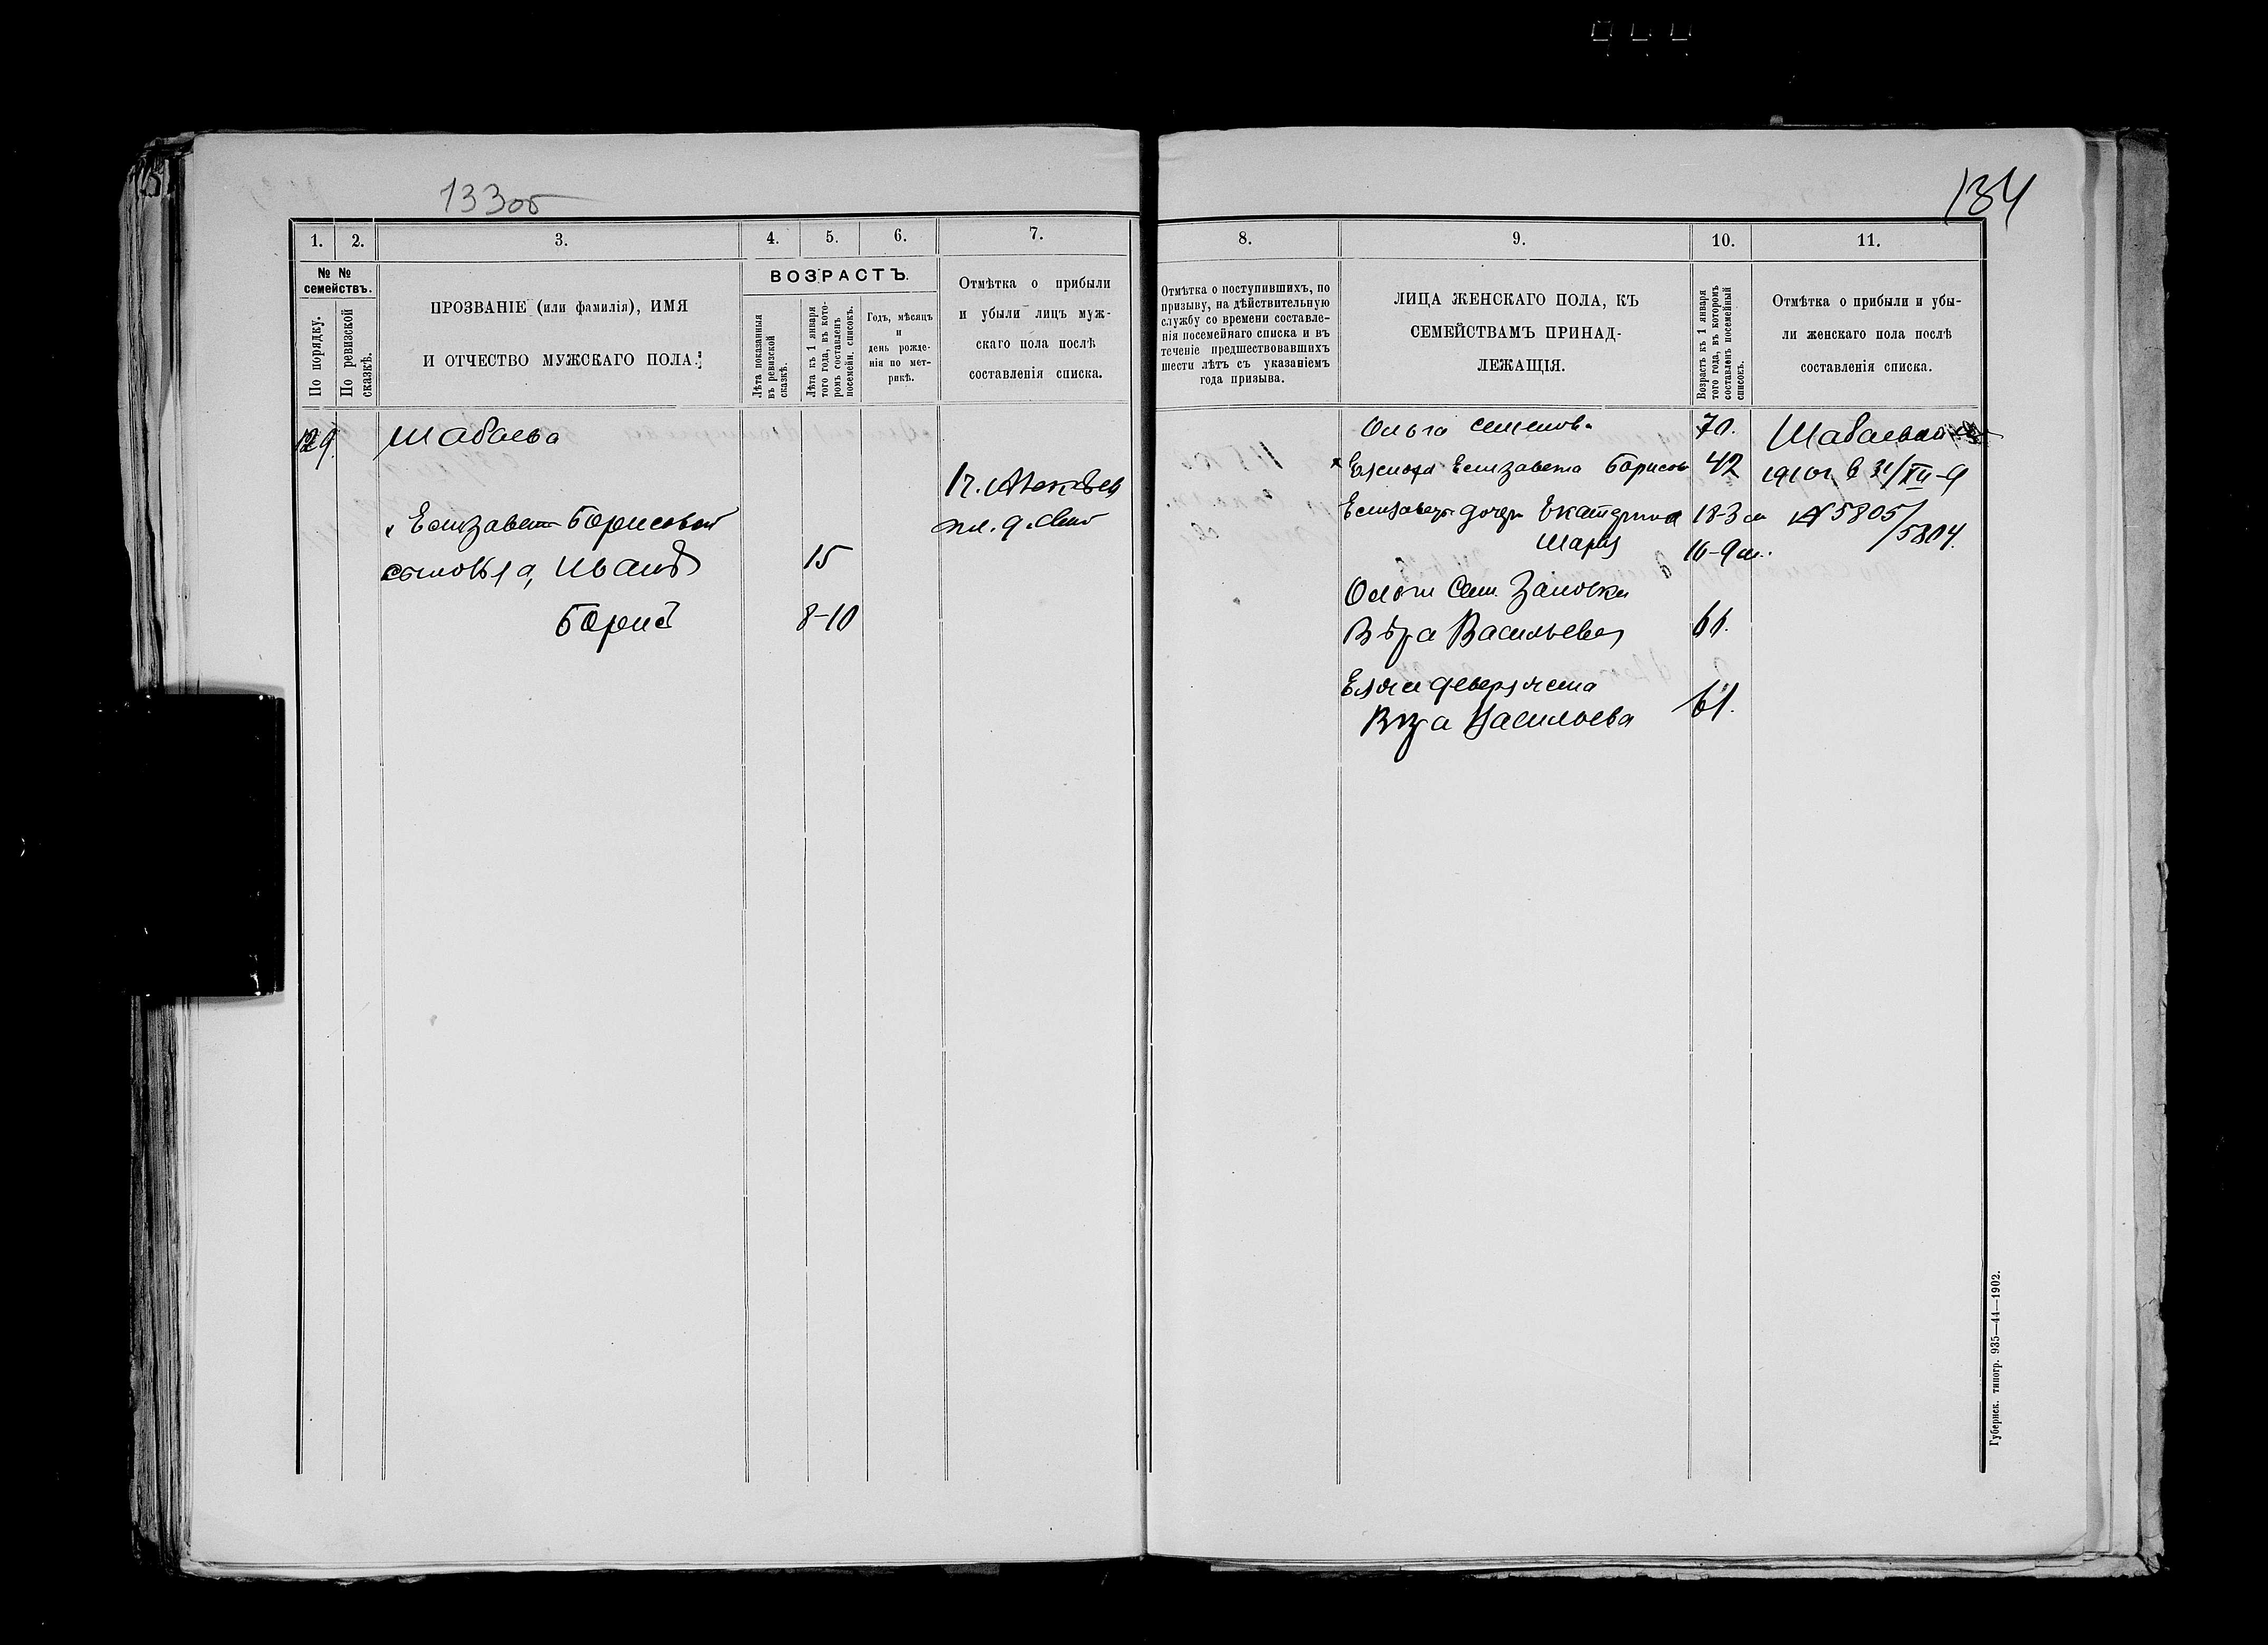 133об
134
1. 2. 3. 4. 5. 6. 7.
№ № семействъ.
По порядку.
По ревизской сказкѣ.
ПРОЗВАНІЕ (или фамилія), ИМЯ
И ОТЧЕСТВО МУЖСКАГО ПОЛА.
ВОЗРАСТЪ.
Лѣта показанныя въ ревизской сказкѣ.
Лѣта къ 1 января того года, въ кото-ромъ составленъ посемейн. списокъ.
Годъ, мѣсяцъ
и
день рожде-
нія по мет-
рикѣ.
Отмѣтка о прибыли
и убыли лицъ муж-
скаго пола послѣ
составленія списка.
129 Шабаева
Елизаветы Борисовой
сыновья, Иванъ 15
Борисъ 8-10
8. 9. 10. 11.
Отмѣтка о поступившихъ, по
призыву, на дѣйствительную
службу со времени составле-
нія посемейнаго списка и въ
теченіе предшествовавшихъ
шести лѣтъ съ указаніемъ
года призыва.
ЛИЦА ЖЕНСКАГО ПОЛА, КЪ
СЕМЕЙСТВАМЪ ПРИНАД-
ЛЕЖАЩІЯ.
Возрастъ къ 1 января
того года, въ которомъ
составленъ посемейный
списокъ.
Отмѣтка о прибыли и убы-
ли женскаго пола послѣ
составленія списка.
Ольга Семенова 70. Шабаева
Елизавета Борисов 42 1910г в 31/XII-9
дочери Екатерина 18-3 м № 5805/
Марія 16-9 м. /5804.
Ольги Сем. Золовка
Вѣра Васильева 61.
Васильева 61.
Губернск. типогр. 935—44—1902.